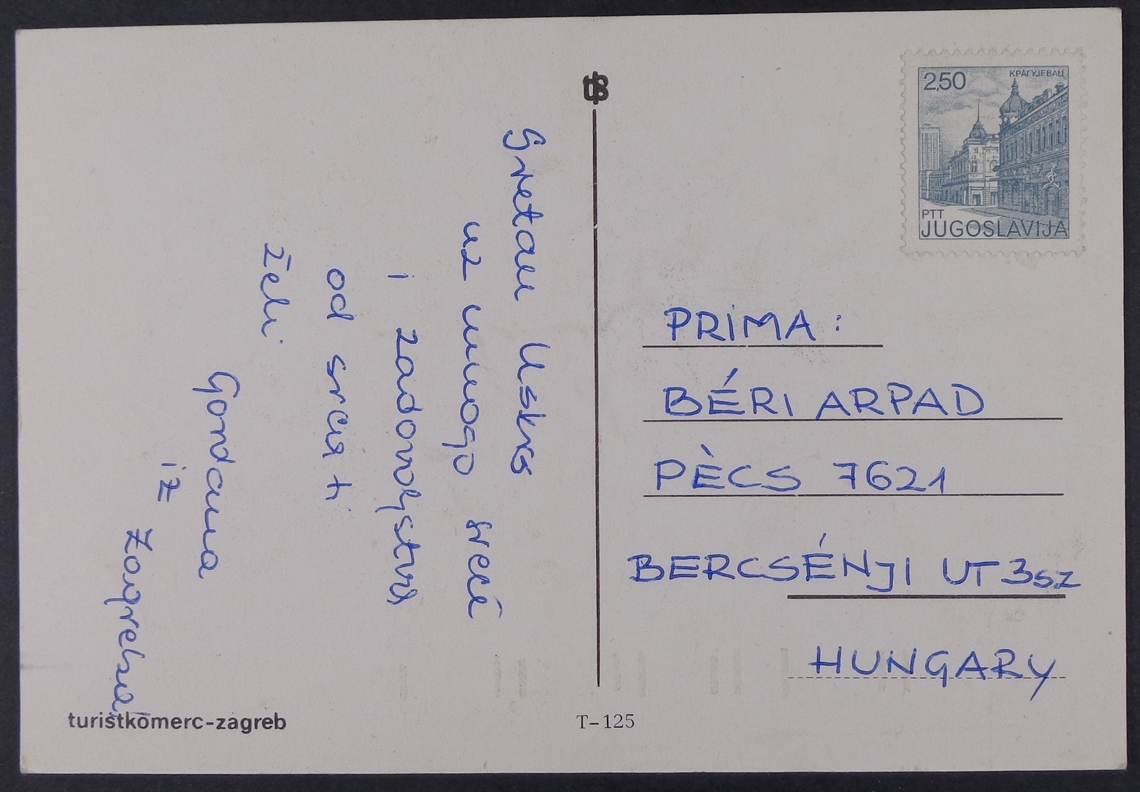 Sretan Uskrs
uz mnogo sreće
i zadovoljstva
od srca ti
želi
Gordana
iz
Zagreba
2,50
КРАГУЈЕВАЦ
PTT
JUGOSLAVIJA
PRIMA:
BÉRI ARPAD
PÈCS 7621
BERCSÉNJI UT 3sz
HUNGARY
turistkomerc-zagreb
T-125